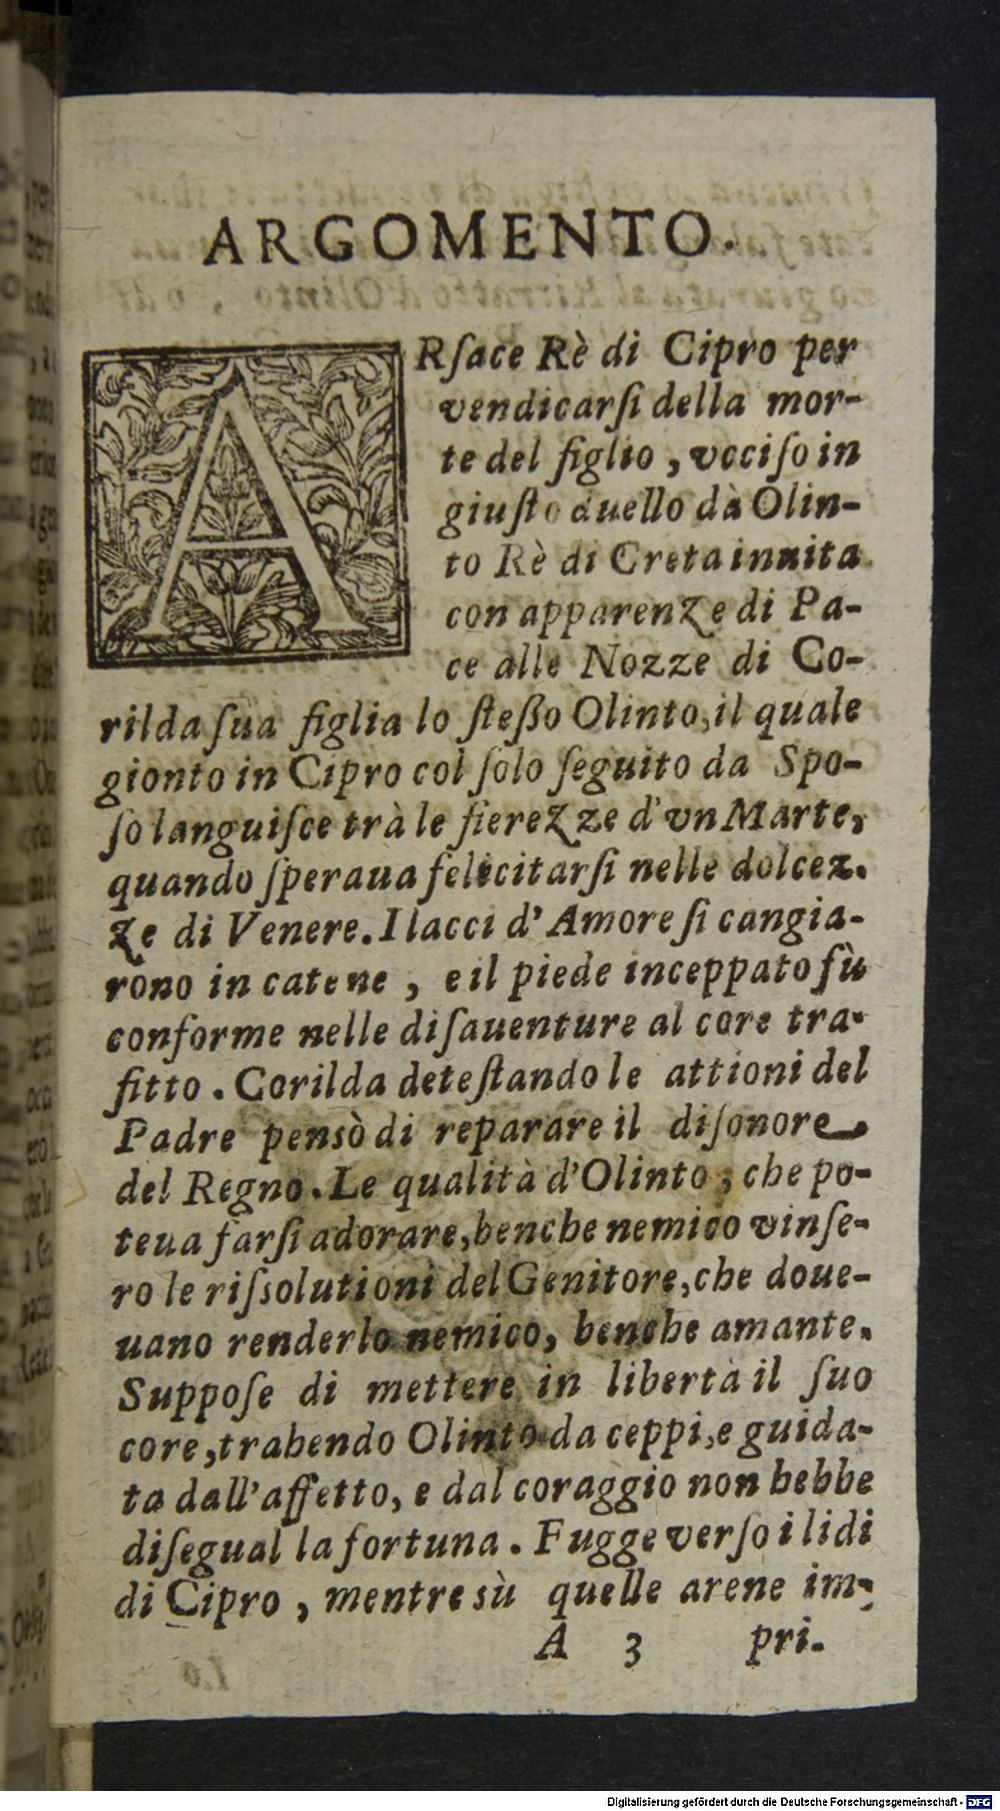 ARGOMENTO.
ARſace Rè di Cipro per
vendicarſi della mor-
te del figlio, vcciſo in
giuſto duello dà Olin-
to Rè di Creta inuita
con apparenze di Pa-
ce alle Nozze di Co-
rilda ſua figlia lo ſteßo Olinto, il quale
gionto in Cipro col ſolo ſeguito da Spo-
ſo languiſce trà le fierezze d'vn Marte,
quando ſperaua felicitarſi nelle dolcez-
ze di Venere. I lacci d'Amore ſi cangia-
rono in catene, e il piede inceppato fù
conforme nelle diſauenture al core tra-
fitto. Corilda deteſtando le attioni del
Padre pensò di reparare il diſonore
del Regno. Le qualità d'Olinto, che po-
teua farſi adorare, benche nemico vinſe-
ro le riſsolutioni del Genitore, che doue-
uano renderlo nemico, benche amante.
Suppoſe di mettere in libertà il ſuo
core, trahendo Olinto da ceppi, e guida-
ta dall'affetto, e dal coraggio non hebbe
diſegual la fortuna. Fugge verſo i lidi
di Cipro, mentre sù quelle arene im-
A 3 pri-
Digitalisierung gefördert durch die Deutsche Forschungsgemeinschaft - DFG